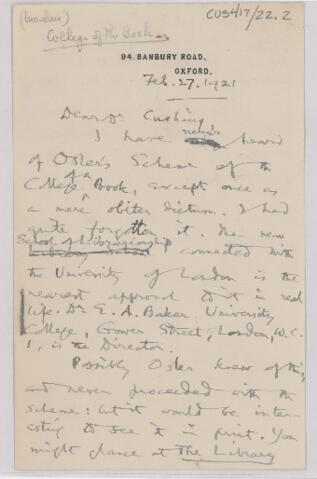 (Madan)
CUS417/22.2
College of the Book
94. BANBURY ROAD,
OXFORD.
Feb. 27. 1921
Dear Dr Cushing
I have never heard
of Osler's Scheme of the
College of a Book, except once as
a mere obiter dictum. I had
quite forgotten it. The new
School of Librarianship
Library School connected with
the University of London is the
nearest approach to it in real
life. Dr E. A. Baker, University
College, Gower Street, London, W.C.
1, is the Director.
Possibly Osler knew of this,
and never proceeded with the
scheme: but it would be inter-
esting to see it in print. You
might glance at The Library